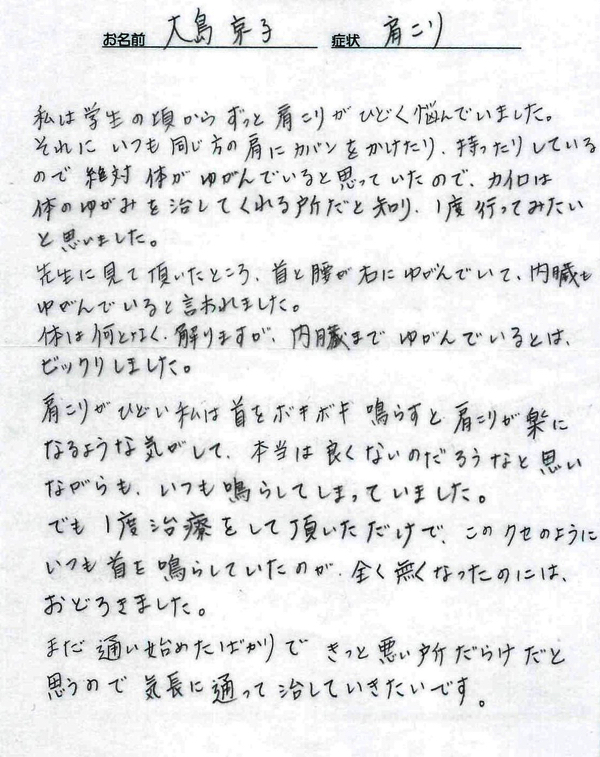 お名前 大島 京子 症状 肩こり
私は学生の頃からずっと肩こりがひどく悩んでいました。
それにいつも同じ方の肩にカバンをかけたり、持ったりしている
ので絶対体がゆがんでいると思っていたので、カイロは
体のゆがみを治してくれる所だと知り、1度行ってみたい
と思いました。
先生に見て頂いたところ、首と腰が右にゆがんでいて、内臓も
ゆがんでいると言われました。
体は何となく解りますが、内臓までゆがんでいるとは、
ビックリしました。
肩こりがひどい私は首をボキボキ鳴らすと肩こりが楽に
なるような気がして、本当は良くないのだろうなと思い
ながらも、いつも鳴らしてしまっていました。
でも1度治療をして頂いただけで、このクセのように
いつも首を鳴らしていたのが、全く無くなったのには、
おどろきました。
まだ通い始めたばかりできっと悪い所だらけだと
思うので気長に通って治していきたいです。